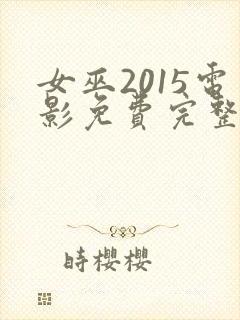 女巫2015電
影免費完整
時櫻櫻